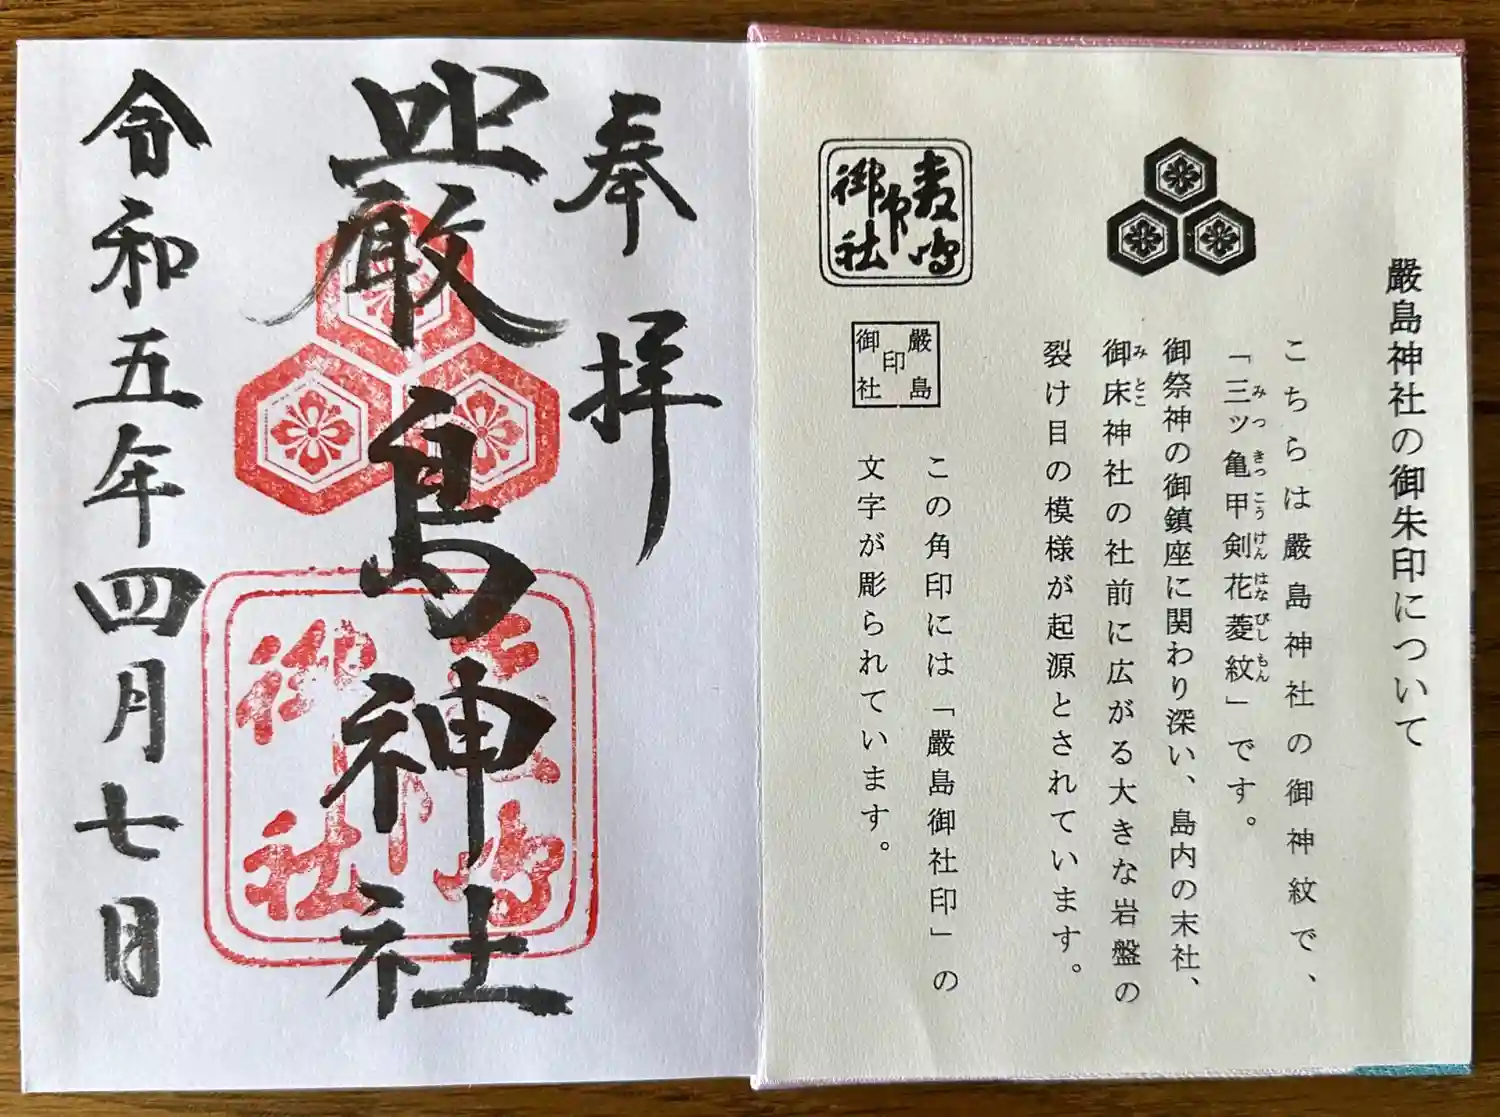 厳島神社の御朱印について
こちらは厳島神社の御神紋で、
「三ッ亀甲剣花菱紋」です。
みっ きっ こう けん はな びし もん
御祭神の御鎮座に関わり深い、島内の末社、
御床神社の社前に広がる大きな岩盤の
み とこ
裂け目の模様が起源とされています。
嚴島
印
御社
この角印には「厳島御社印」の
文字が彫られています。
奉拝
嚴島神社
令和五年四月七日
御社